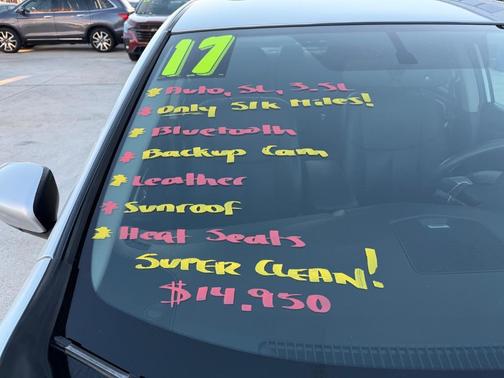 17
* Auto, SL, 3.5L
* Only 51k Miles!
* Bluetooth
* Backup Cam
* Leather
* Sunroof
* Heat Seats
Super Clean!
$14,950